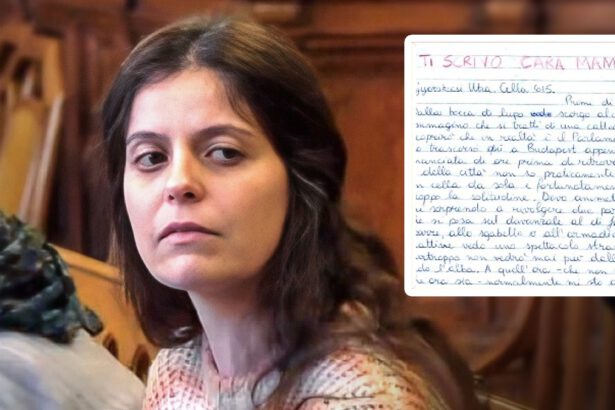 TI SCRIVO CARA MAM
gyorskocsi Utca Cella 615.
Prima di
dalla bocca di lupo scorgo al
immagino che si tratti di una catte
coprirò che in realtà è il Parlame
o trascorso ani a Budapest appen
manciata di ore prima di ritrova
della città non so praticamente
in cella da sola e fortunatamen
oppo la solitudine. Devo ammet
i sorprendo a rivolgere due pa
e si posa sul davanzale al di f
, allo sgabello o all'armadi
attine vedo uno spettacolo stra
rtroppo non vedrò mai più dall
do l'alba. A quell'ora - che non
e ora sia - normalmente mi sto a